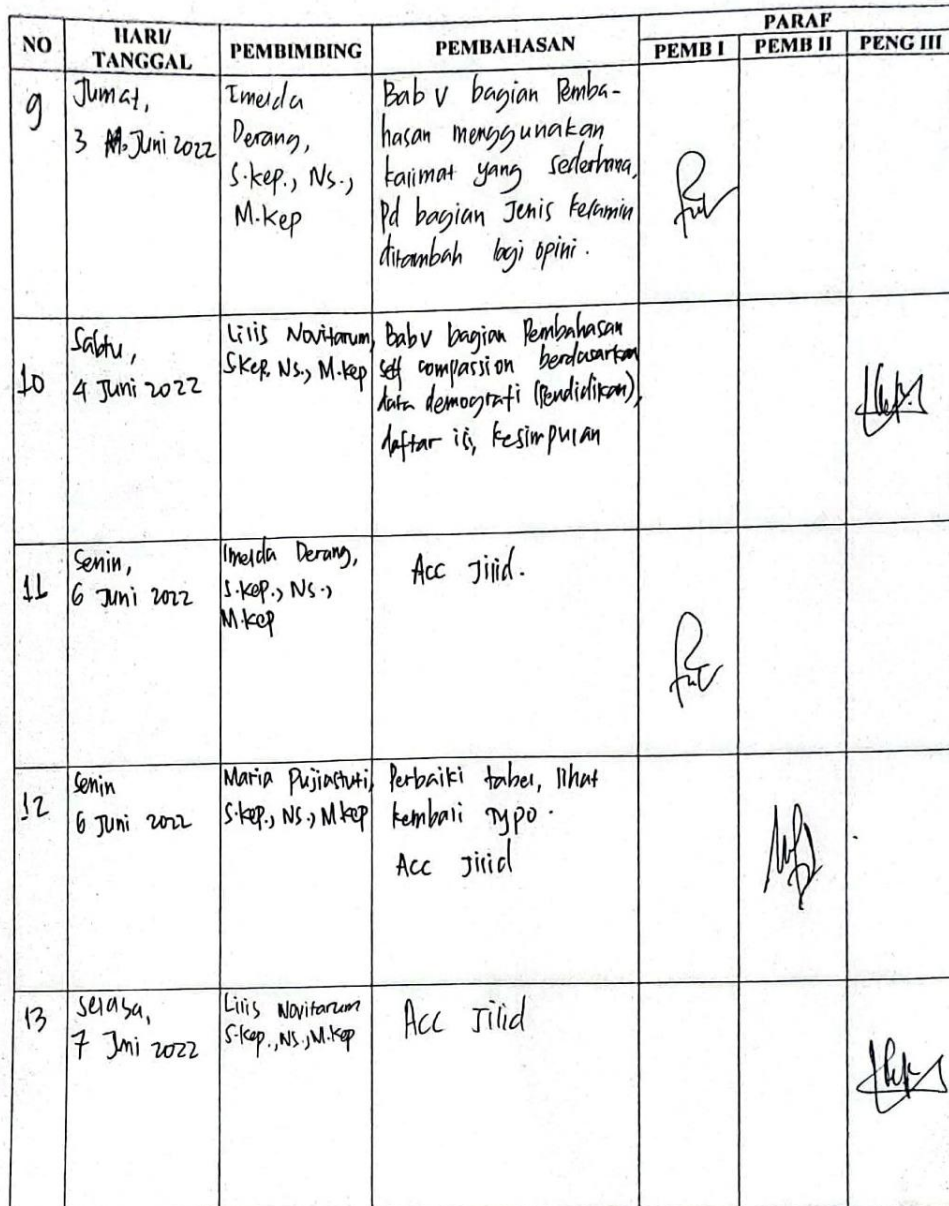 NO HARI/ TANGGAL PEMBIMBING PEMBAHASAN PARAF
PEMB I PEMB II PENG III
9
Jumat,
3 Juni 2022
Imelda
Derang,
S.kep., Ns.,
M.Kep
Bab V bagian Pemba-
hasan menggunakan
kalimat yang sederhana,
Pd bagian Jenis kelamin
ditambah lagi opini.
10
Sabtu,
4 Juni 2022
Lilis Novitarum,
S.Kep, Ns., M.kep
Bab V bagian Pembahasan
self compassion berdasarkan
data demografi (Pendidikan),
daftar isi, kesimpulan
11
Senin,
6 Juni 2022
Imelda Derang,
S.kep., Ns.,
M.kep
Acc Jilid.
12
Senin
6 Juni 2022
Maria Pujiastuti,
S.kep., Ns., M.kep
Perbaiki tabel, lihat
kembali Typo.
Acc Jilid
13
Selasa,
7 Juni 2022
Lilis Novitarum
S.Kep., Ns., M.Kep
Acc Jilid